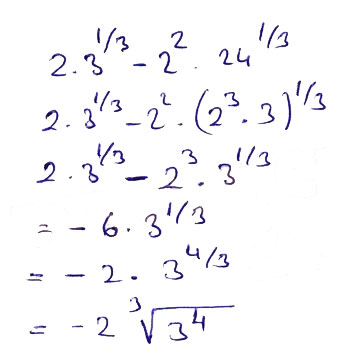 2 · 3^{1/3} - 2^2 · 24^{1/3}
2 · 3^{1/3} - 2^2 · (2^3 · 3)^{1/3}
2 · 3^{1/3} - 2^3 · 3^{1/3}
= - 6 · 3^{1/3}
= - 2 · 3^{4/3}
= - 2 ∛(3^4)